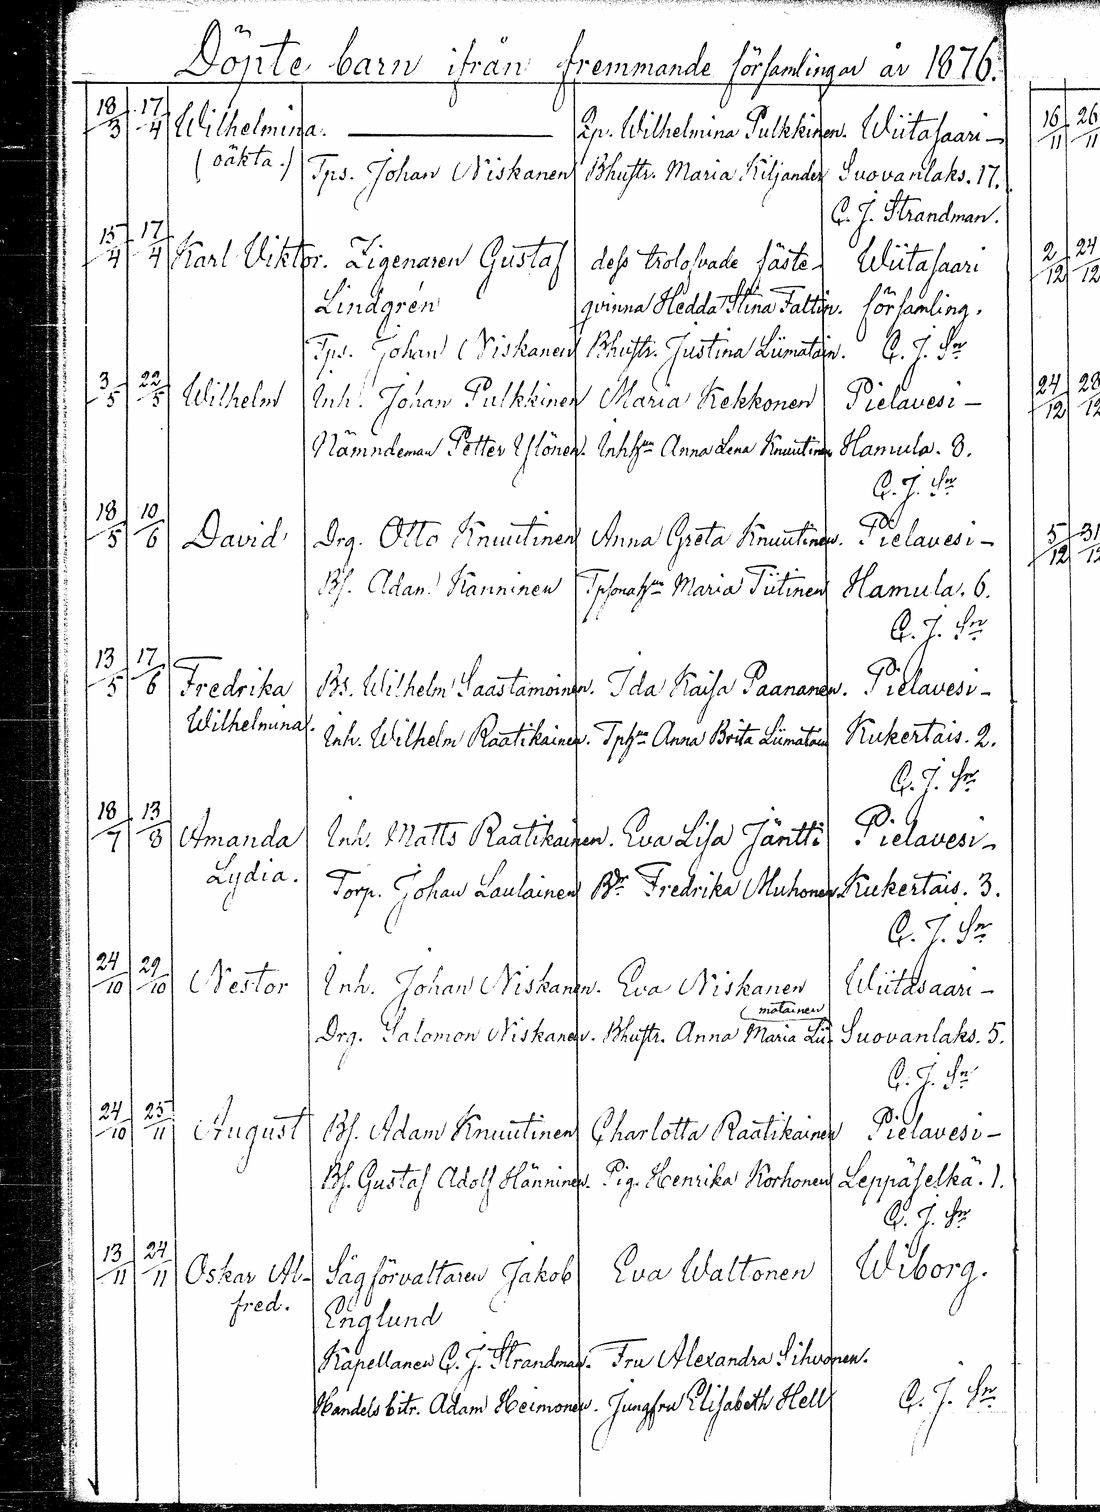 Döpte barn ifrån fremmande församlingar år 1876.
18/3 17/4 Wilhelmina. Qp. Wilhelmina Pulkkinen. Wiitasaari –
(oäkta.) Tps. Johan Niskanen Bhustr. Maria Kiljander Suovanlaks. 17.
C. J. Strandman.
15/4 17/4 Karl Viktor. Zigenaren Gustaf dess trolofvade fäste- Wiitasaari
Lindgrén qvinna Hedda Stina Faltin. församling.
Tps. Johan Niskanen Bhustr. Justina Liimatain. C. J. Sn
3/5 22/5 Wilhelm Inh. Johan Pulkkinen Maria Kekkonen Pielavesi –
Nämndeman Petter Ylönen. Inhhun Anna Lena Knuutinen Hamula. 8.
C. J. Sn
18/5 10/6 David Drg. Otto Knuutinen Anna Greta Knuutinen. Pielavesi –
Bs. Adam Kanninen Maria Tiitinen Hamula. 6.
C. J. Sn
13/5 17/6 Fredrika Bs. Wilhelm Saastamoinen. Ida Kaisa Paananen. Pielavesi –
Wilhelmina. Inh. Wilhelm Raatikainen. Tphun Anna Brita Liimatain Kukertais. 2.
C. J. Sn
18/7 13/8 Amanda Inh. Matts Raatikainen. Eva Lisa Jäntti Pielavesi –
Lydia. Torp. Johan Laulainen Br Fredrika Muhonen. Kukertais. 3.
C. J. Sn
24/10 29/10 Nestor Inh. Johan Niskanen. Eva Niskanen Wiitasaari –
(matainen
Drg. Salomon Niskanen. Bhustr. Anna Maria Lii- Suovanlaks. 5.
C. J. Sn
24/10 25/11 August Bs. Adam Knuutinen Charlotta Raatikainen Pielavesi –
Bs. Gustaf Adolf Hänninen. Pig. Henrika Korhonen Leppäselkä. 1.
C. J. Sn
13/11 24/11 Oskar Al- Sågförvaltaren Jakob Eva Waltonen Wiborg.
fred. Englund
Kapellanen C. J. Strandman. Fru Alexandra Sihvonen.
Handels bitr. Adam Heimonen. Jungfru Elisabeth Hell C. J. Sn
16/11 26/11
2/12 24/12
24/12 28/12
5/12 31/12